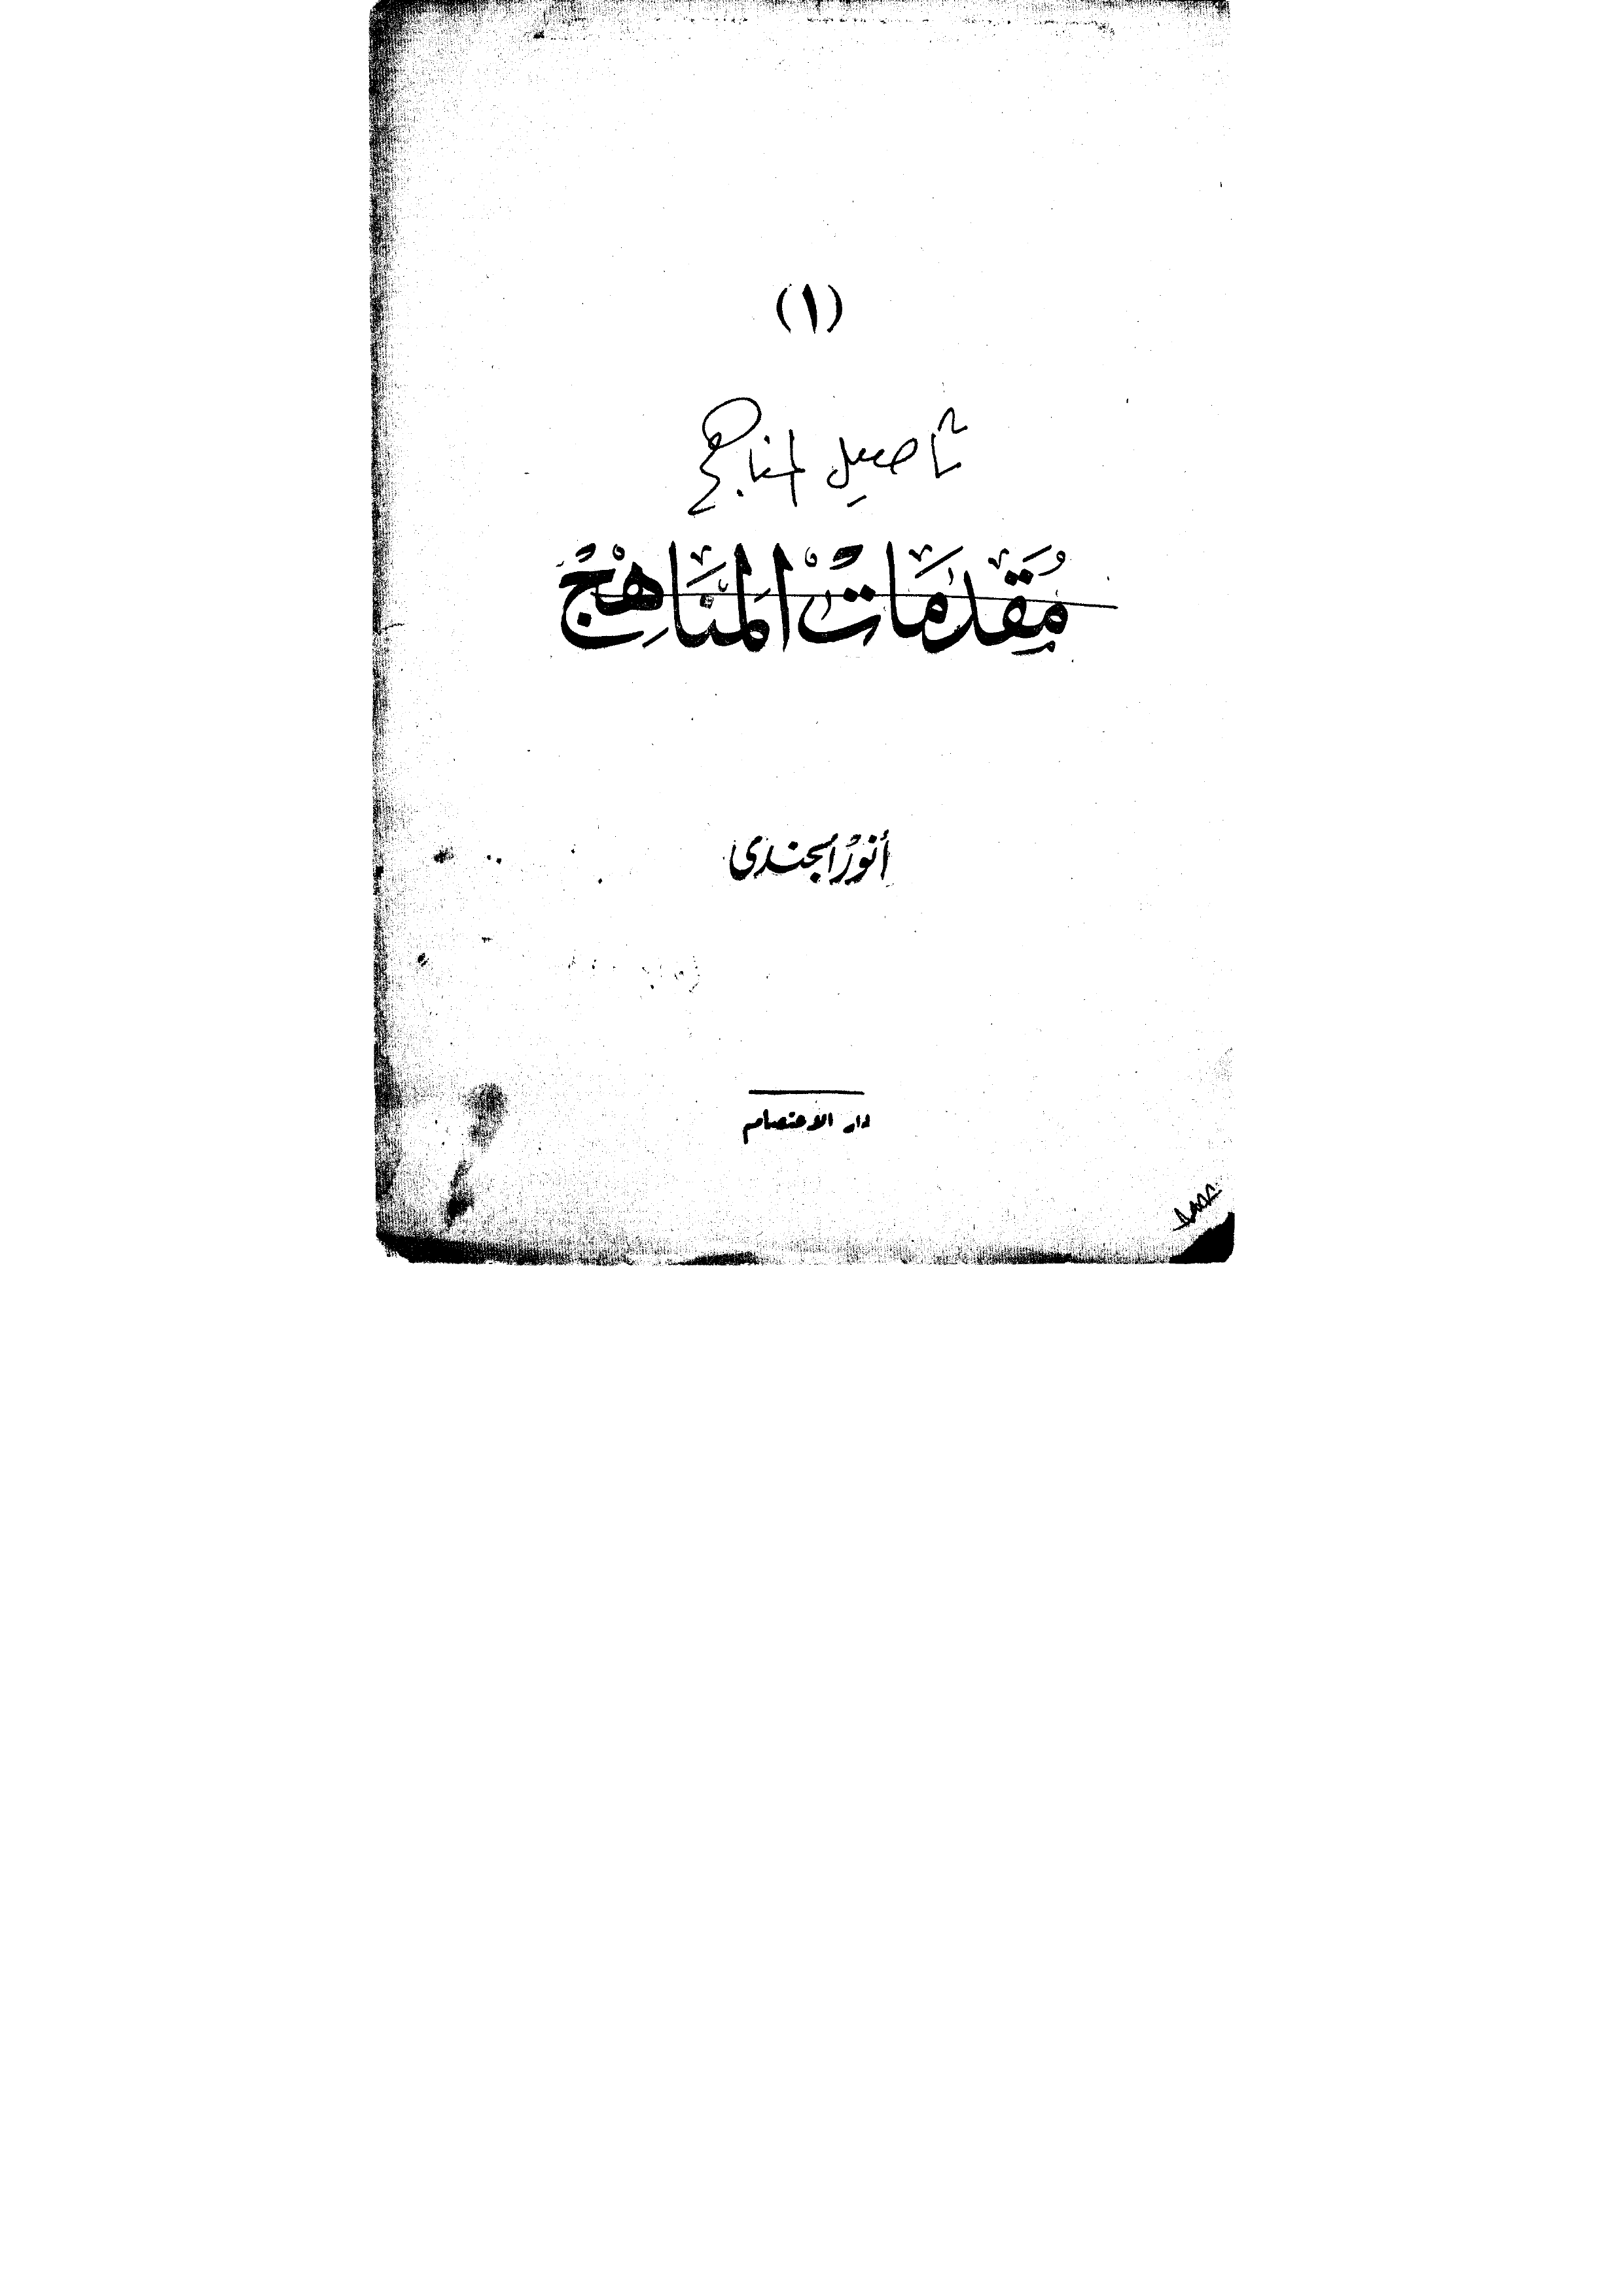 (١)
تأصيل المناهج
مُقَدمَاتْ المَنَاهِجْ
أنورُ الجندى
دار الاعتصام